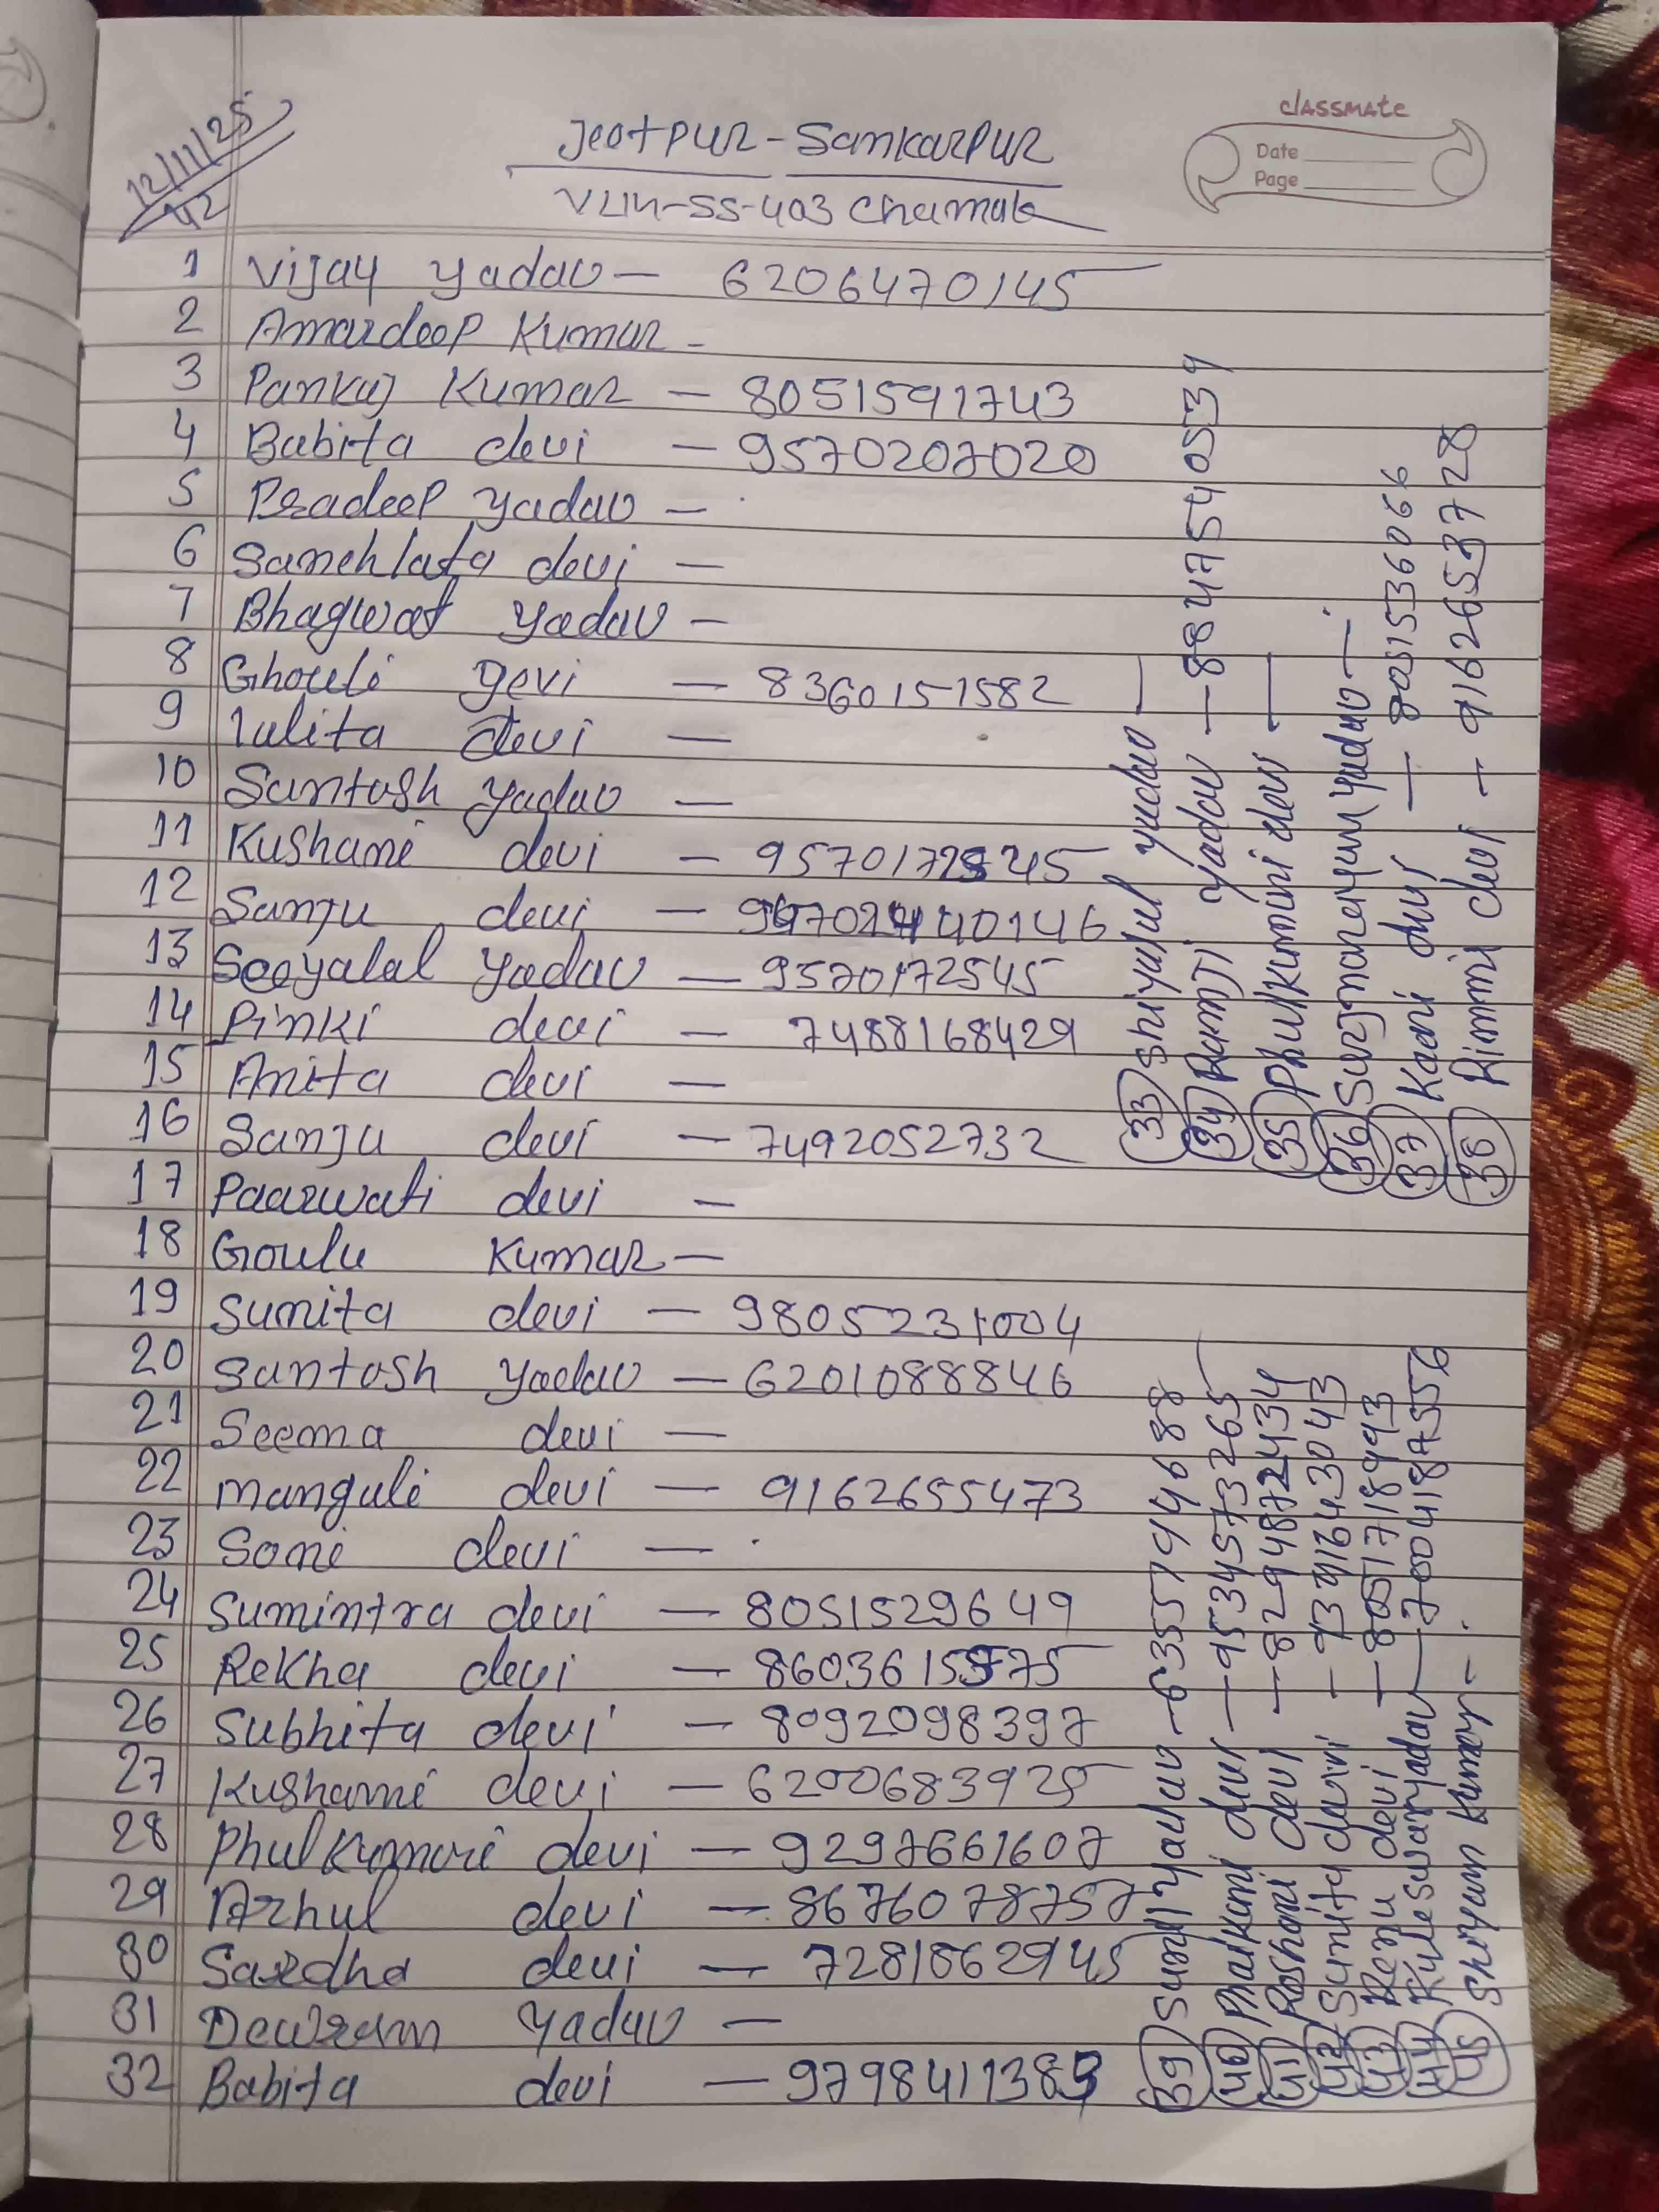 12/11/25
42
Jeotpur - Samkarpur
VLIN-SS-403 Chamak
classmate
Date
Page
1 Vijay Yadav — 6206470145
2 Amardeep Kumar -
3 Pankaj Kumar — 8051591743
4 Babita devi — 9570207020
5 Pradeep Yadav —
6 Sanehlata devi —
7 Bhagwat Yadav —
8 Ghouli Devi — 8360151582
9 lalita devi —
10 Santosh Yadav —
11 Kushami devi —
12 Sanju devi —
13 Seeyalal Yadav — 9570172545
14 Pinki devi — 7488168429
15 Anita devi —
16 Sanju devi — 7492052732
17 Paarwati devi —
18 Goulu Kumar —
19 Sunita devi — 9805231004
20 Santosh Yadav — 6201088846
21 Seema devi —
22 Manguli devi — 9162655473
23 Soni devi —
24 Sumintra devi — 8051529649
25 Rekha devi —
26 Subhita devi — 8092098397
27 Kushami devi — 6200683925
28 Phulkumari devi — 9297661607
29 Arhul devi — 8676078757
30 Sardha devi — 7281862945
31 Dewram Yadav —
32 Babita devi —
33 Shiyalal Yadav —
34 Ramji Yadav — 8847540539
35 Phulkumini devi —
36 Surjnarayan Yadav —
37 Kaani devi — 8051536066
38 Rimmi devi — 9162653728
39 Sunil Yadav — 6355794688
40 Phulkami devi — 9534573265
41 Roshani devi — 8294872434
42 Sunita devi —
43 Renu devi —
44 Kuleswar Yadav — 7004187556
45 Shiyam Kumar -